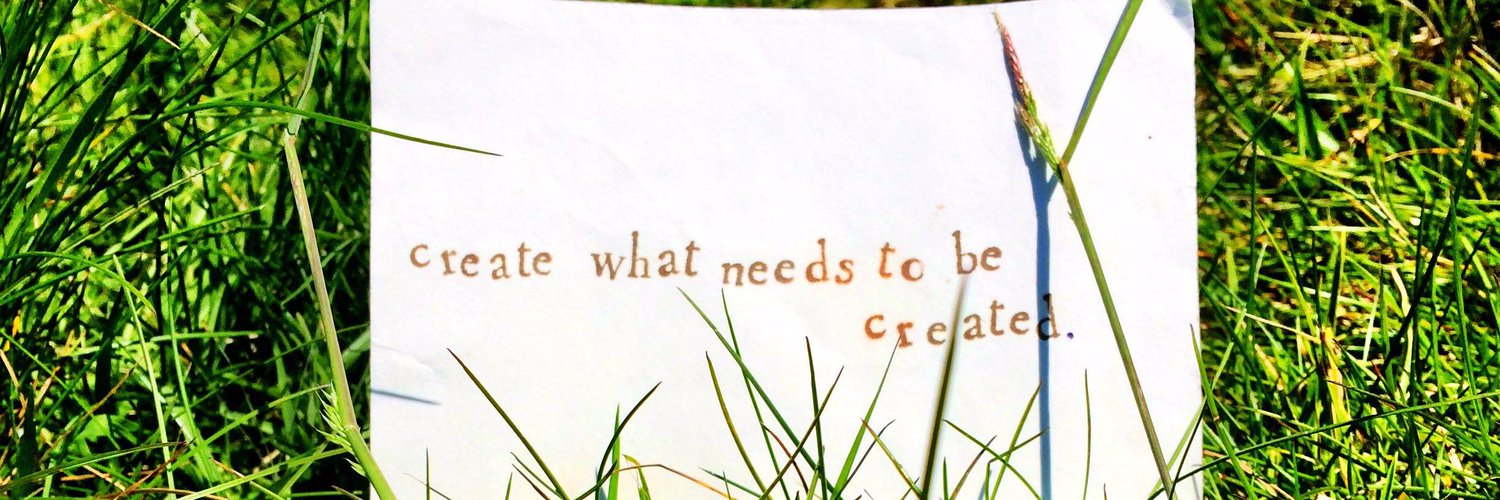 create what needs to be
created.